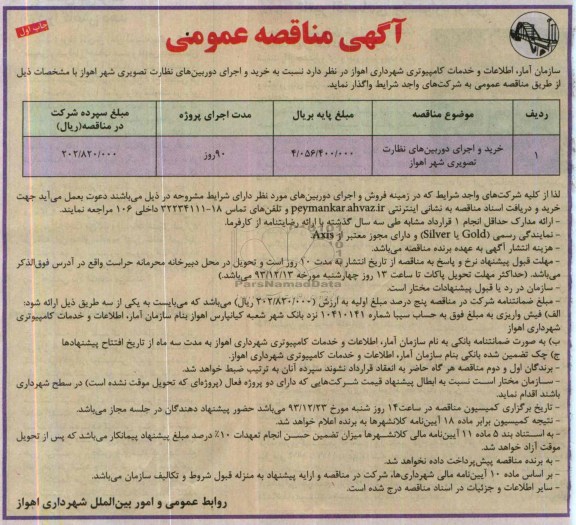 چاپ اول
آگهی مناقصه عمومی
سازمان آمار، اطلاعات و خدمات کامپیوتری شهرداری اهواز در نظر دارد نسبت به خرید و اجرای دوربین‌های نظارت تصویری شهر اهواز با مشخصات ذیل
از طریق مناقصه عمومی به شرکت‌های واجد شرایط واگذار نماید.
ردیف موضوع مناقصه مبلغ پایه بریال مدت اجرای پروژه مبلغ سپرده شرکت در مناقصه(ریال)
۱ خرید و اجرای دوربین‌های نظارت تصویری شهر اهواز ۴/۰۵۶/۴۰۰/۰۰۰ ۹۰روز ۲۰۲/۸۲۰/۰۰۰
لذا از کلیه شرکت‌های واجد شرایط که در زمینه فروش و اجرای دوربین‌های مورد نظر دارای شرایط مشروحه در ذیل می‌باشند دعوت بعمل می‌آید جهت
خرید و دریافت اسناد مناقصه به نشانی اینترنتی peymankar.ahvaz.ir و تلفن‌های تماس ۱۸-۳۲۲۳۴۱۱۱ داخلی ۱۰۶ مراجعه نمایند.
- ارائه مدارک حداقل انجام ۱ قرارداد مشابه طی سه سال گذشته با ارائه رضایتنامه از کارفرما.
- نمایندگی رسمی (Gold یا Silver) و دارای مجوز معتبر از Axis
- هزینه انتشار آگهی به عهده برنده مناقصه می‌باشد.
- مهلت قبول پیشنهاد نرخ و پاسخ به مناقصه از تاریخ انتشار به مدت ۱۰ روز است و تحویل در محل دبیرخانه محرمانه حراست واقع در آدرس فوق‌الذکر
می‌باشد. (حداکثر مهلت تحویل پاکات تا ساعت ۱۳ روز چهارشنبه مورخه ۹۳/۱۲/۱۳ می‌باشد.)
- سازمان در رد یا قبول پیشنهادات مختار است.
- مبلغ ضمانتنامه شرکت در مناقصه پنج درصد مبلغ اولیه به ارزش (۲۰۲/۸۲۰/۰۰۰ ریال) می‌باشد که می‌بایست به یکی از سه طریق ذیل ارائه شود:
الف) فیش واریزی به مبلغ فوق به حساب سیبا شماره ۱۰۴۱۰۱۴۱ نزد بانک شهر شعبه کیانپارس اهواز بنام سازمان آمار، اطلاعات و خدمات کامپیوتری
شهرداری اهواز
ب) به صورت ضمانتنامه بانکی به نام سازمان آمار، اطلاعات و خدمات کامپیوتری شهرداری اهواز به مدت سه ماه از تاریخ افتتاح پیشنهادها
ج) چک تضمین شده بانکی بنام سازمان آمار، اطلاعات و خدمات کامپیوتری شهرداری اهواز.
- برندگان اول و دوم مناقصه هر گاه حاضر به انعقاد قرارداد نشوند سپرده آنان به ترتیب ضبط خواهد شد.
- سازمان مختار است نسبت به ابطال پیشنهاد قیمت شرکت‌هایی که دارای دو پروژه فعال (پروژه‌ای که تحویل موقت نشده است) در سطح شهرداری
باشند اقدام نماید.
- تاریخ برگزاری کمیسیون مناقصه در ساعت۱۴ روز شنبه مورخ ۹۳/۱۲/۲۳ می‌باشد حضور پیشنهاد دهندگان در جلسه مجاز می‌باشد.
- نتیجه کمیسیون برابر ماده ۱۸ آیین‌نامه کلانشهرها به برنده اعلام خواهد شد.
- به استناد بند ۵ ماده ۱۱ آیین‌نامه مالی کلانشهرها میزان تضمین حسن انجام تعهدات ۱۰٪ درصد مبلغ پیشنهاد پیمانکار می‌باشد که پس از تحویل
موقت آزاد خواهد شد.
- به برنده مناقصه پیش‌پرداخت داده نخواهد شد.
- بر اساس ماده ۱۰ آیین‌نامه مالی شهرداری‌ها، شرکت در مناقصه و ارایه پیشنهاد به منزله قبول شروط و تکالیف سازمان می‌باشد.
- سایر اطلاعات و جزئیات در اسناد مناقصه درج شده است.
روابط عمومی و امور بین‌الملل شهرداری اهواز
ParsNamadData